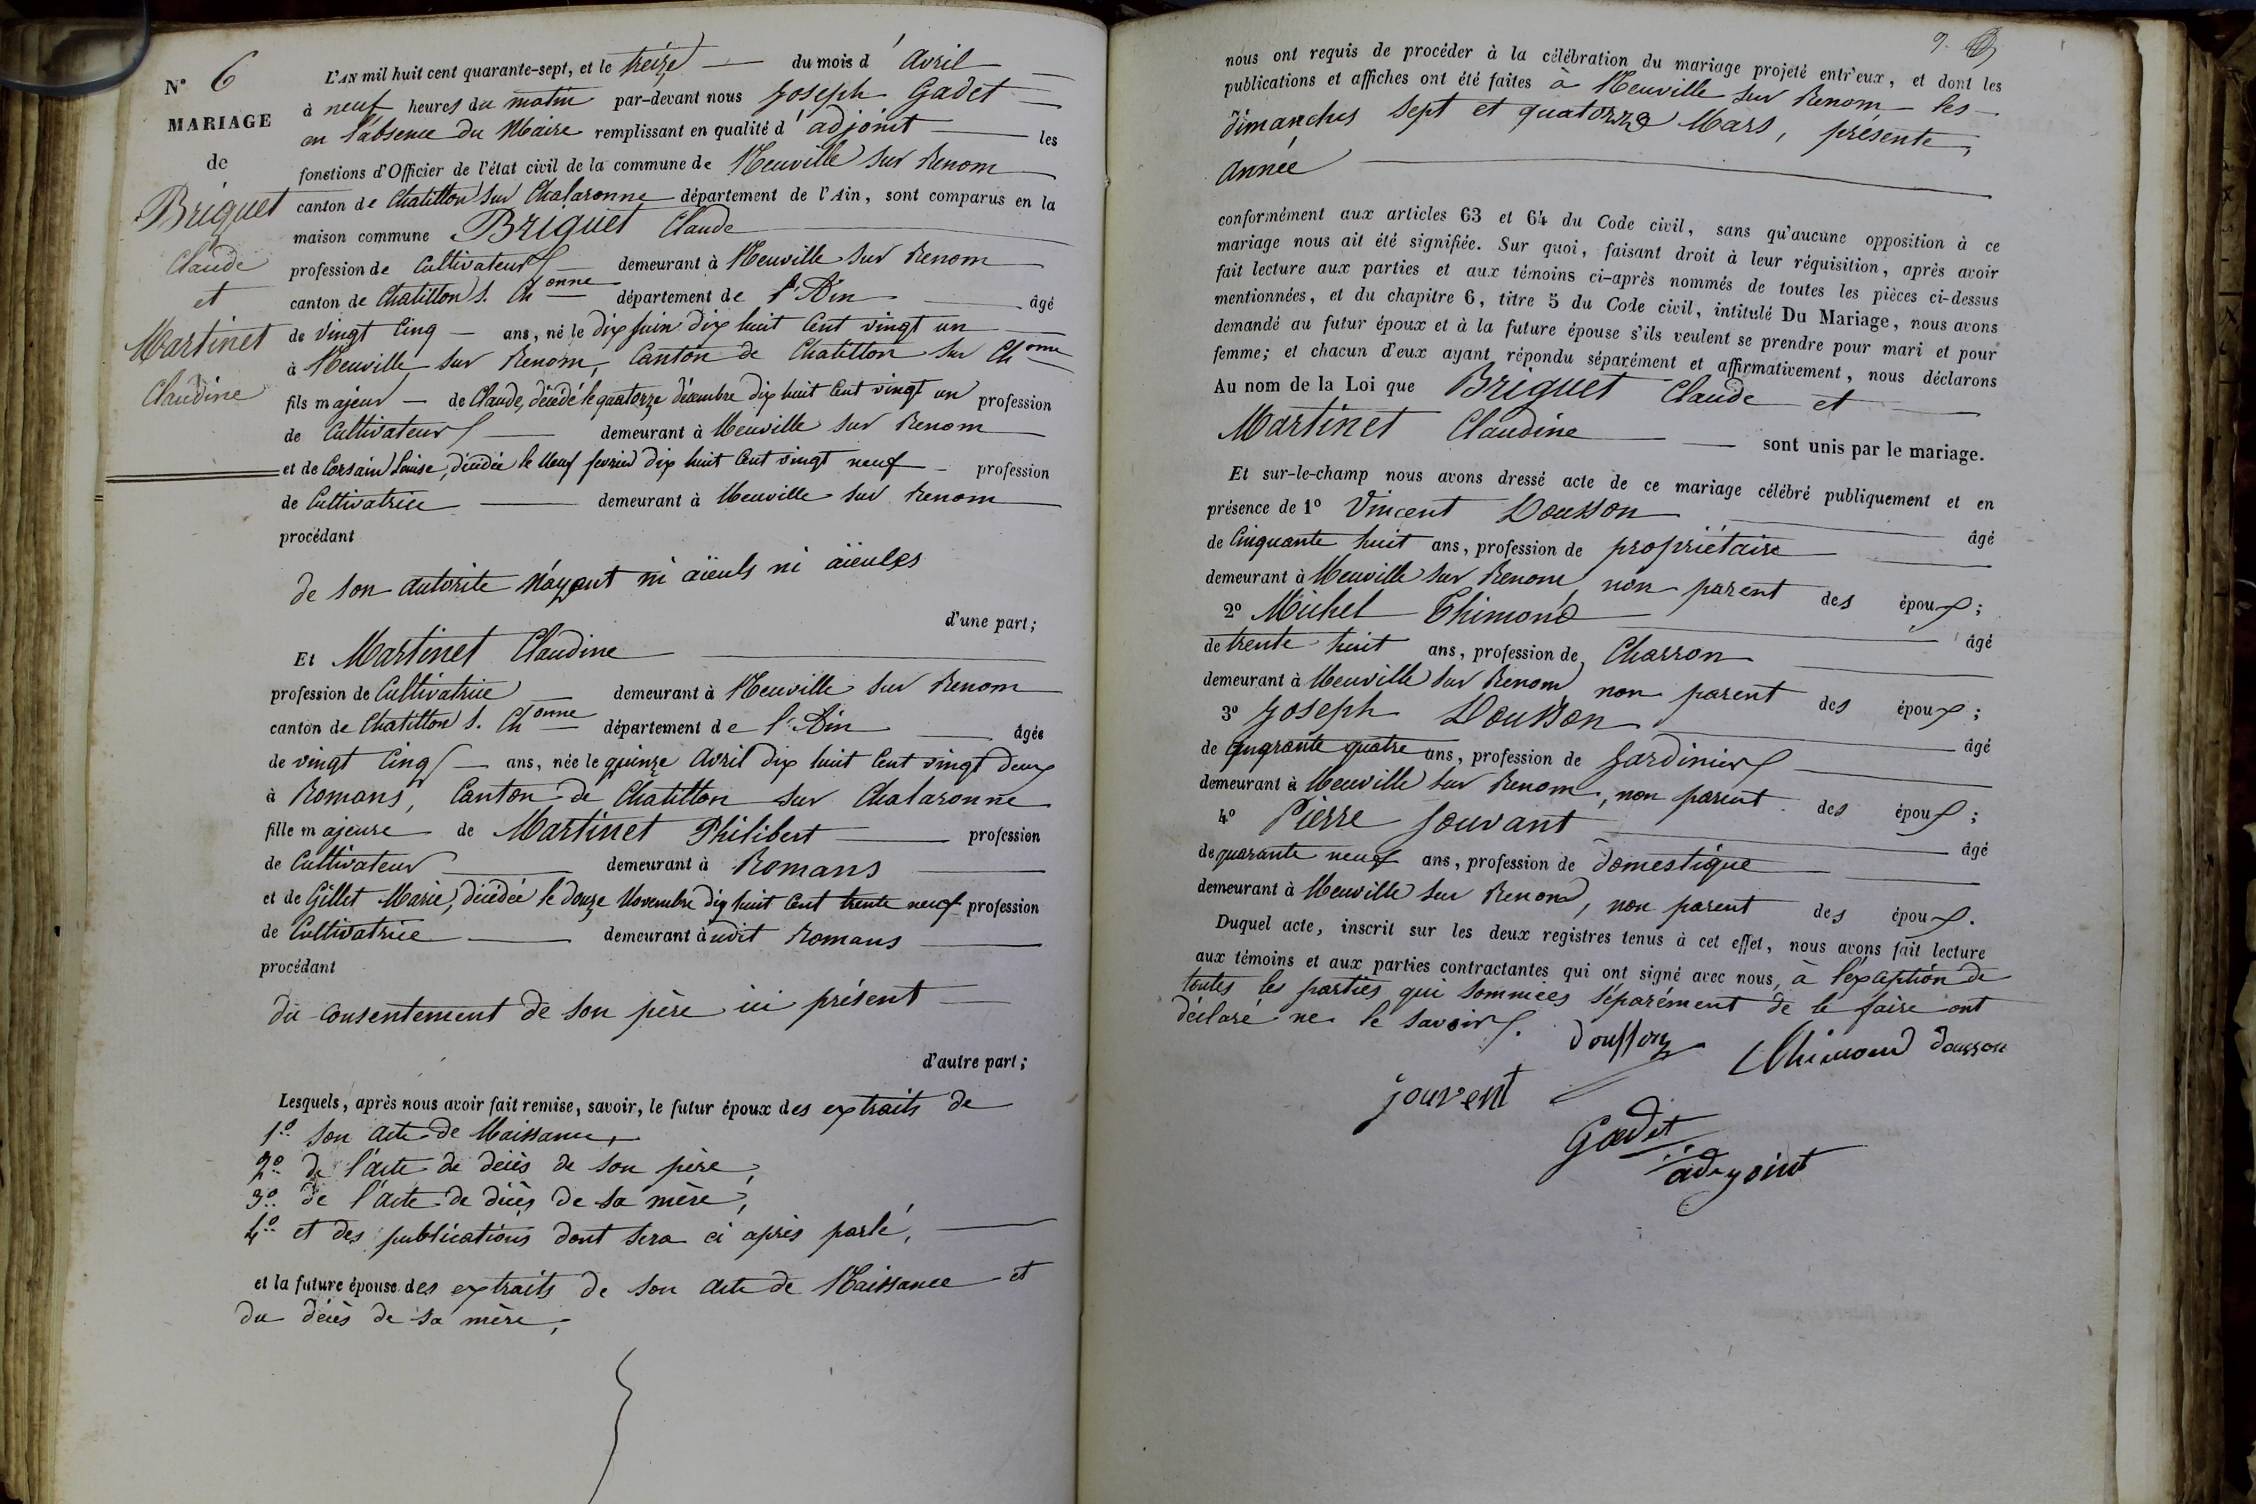 N° 6
MARIAGE
de
Briquet
Claude
et
Martinet
Claudine
L'AN mil huit cent quarante-sept, et le treize du mois d'Avril
à neuf heures du matin par-devant nous Joseph Gadet
en l'absence du Maire remplissant en qualité d'adjoint les
fonctions d'Officier de l'état civil de la commune de Neuville sur Renom
canton de Chatillon sur Chalaronne département de l'Ain, sont comparus en la
maison commune Briquet Claude
profession de Cultivateur demeurant à Neuville sur Renom
canton de Chatillon s. Chonne département de l'Ain âgé
de vingt cinq ans, né le dix juin dix huit cent vingt un
à Neuville sur Renom, Canton de Chatillon sur Chonne
fils majeur de Claude, décédé le quatorze décembre dix huit cent vingt un profession
de Cultivateur demeurant à Neuville sur Renom
et de Corsain Louise, décédée le neuf fevrier dix huit cent vingt neuf profession
de Cultivatrice demeurant à Neuville sur Renom
procédant
de son autorite n'ayant ni aïeuls ni aïeules
d'une part;
Et Martinet Claudine
profession de Cultivatrice demeurant à Neuville sur Renom
canton de Chatillon s. Chonne département de l'Ain âgée
de vingt cinq ans, née le quinze Avril dix huit cent vingt deux
à Romans, Canton de Chatillon sur Chalaronne
fille majeure de Martinet Philibert profession
de Cultivateur demeurant à Romans
et de Gillet Marie, décédée le douze Novembre dix huit cent trente neuf profession
de Cultivatrice demeurant à udit Romans
procédant
du consentement de son père ici présent
d'autre part;
Lesquels, après nous avoir fait remise, savoir, le futur époux des extraits de
1° son acte de Naissance,
2° de l'acte de décès de son père,
3° de l'acte de décès de sa mère,
4° et des publications dont sera ci après parlé,
et la future épouse des extraits de son acte de Naissance et
du décès de sa mère,
9.
nous ont requis de procéder à la célébration du mariage projeté entr'eux, et dont les
publications et affiches ont été faites à Neuville sur Renom les
dimanches sept et quatorze Mars, présente
année
conformément aux articles 63 et 64 du Code civil, sans qu'aucune opposition à ce
mariage nous ait été signifiée. Sur quoi, faisant droit à leur réquisition, après avoir
fait lecture aux parties et aux témoins ci-après nommés de toutes les pièces ci-dessus
mentionnées, et du chapitre 6, titre 5 du Code civil, intitulé Du Mariage, nous avons
demandé au futur époux et à la future épouse s'ils veulent se prendre pour mari et pour
femme; et chacun d'eux ayant répondu séparément et affirmativement, nous déclarons
Au nom de la Loi que Briquet Claude et
Martinet Claudine sont unis par le mariage.
Et sur-le-champ nous avons dressé acte de ce mariage célébré publiquement et en
présence de 1° Vincent Dousson âgé
de Cinquante huit ans, profession de propriétaire
demeurant à Neuville sur Renom, non parent des époux;
2° Michel Thimond âgé
de trente huit ans, profession de Charron
demeurant à Neuville sur Renom, non parent des époux;
3° Joseph Dousson âgé
de quarante quatre ans, profession de Jardinier
demeurant à Neuville sur Renom, non parent des époux;
4° Pierre Jouvant âgé
de quarante neuf ans, profession de domestique
demeurant à Neuville sur Renom, non parent des époux.
Duquel acte, inscrit sur les deux registres tenus à cet effet, nous avons fait lecture
aux témoins et aux parties contractantes qui ont signé avec nous, à l'exception de
toutes les parties qui sommées séparément de le faire ont
déclaré ne le savoir.
Dousson Thimond dousson
jouvent
Gadet
adjoint